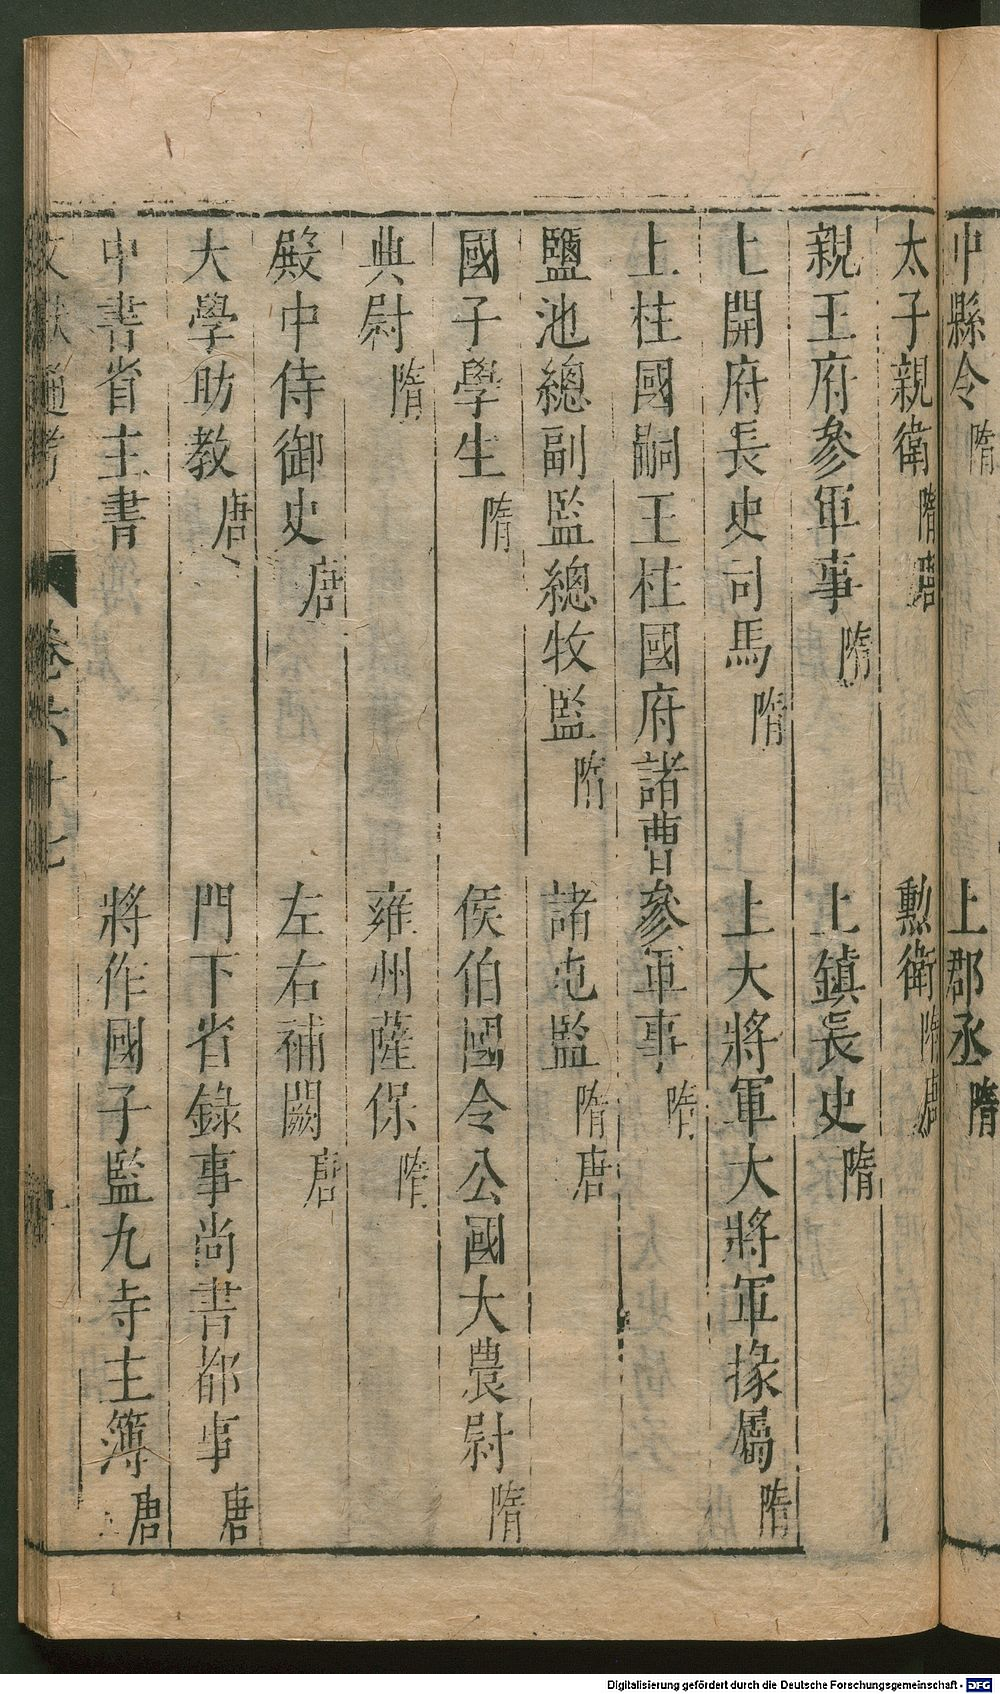 中縣令 隋　上郡丞 隋
太子親衛 隋唐　勲衛 隋唐
親王府參軍事 隋　上鎮長史 隋
上開府長史司馬 隋　上大將軍大將軍掾屬 隋
上柱國嗣王柱國府諸曹參軍事 隋
鹽池總副監總牧監 隋　諸屯監 隋唐
國子學生 隋　侯伯國令公國大農尉 隋
典尉 隋　雍州薩保 隋
殿中侍御史 唐　左右補闕 唐
大學助教 唐　門下省錄事尚書都事 唐
中書省主書　將作國子監九寺主簿 唐
文獻通考　卷六十七
Digitalisierung gefördert durch die Deutsche Forschungsgemeinschaft - DFG